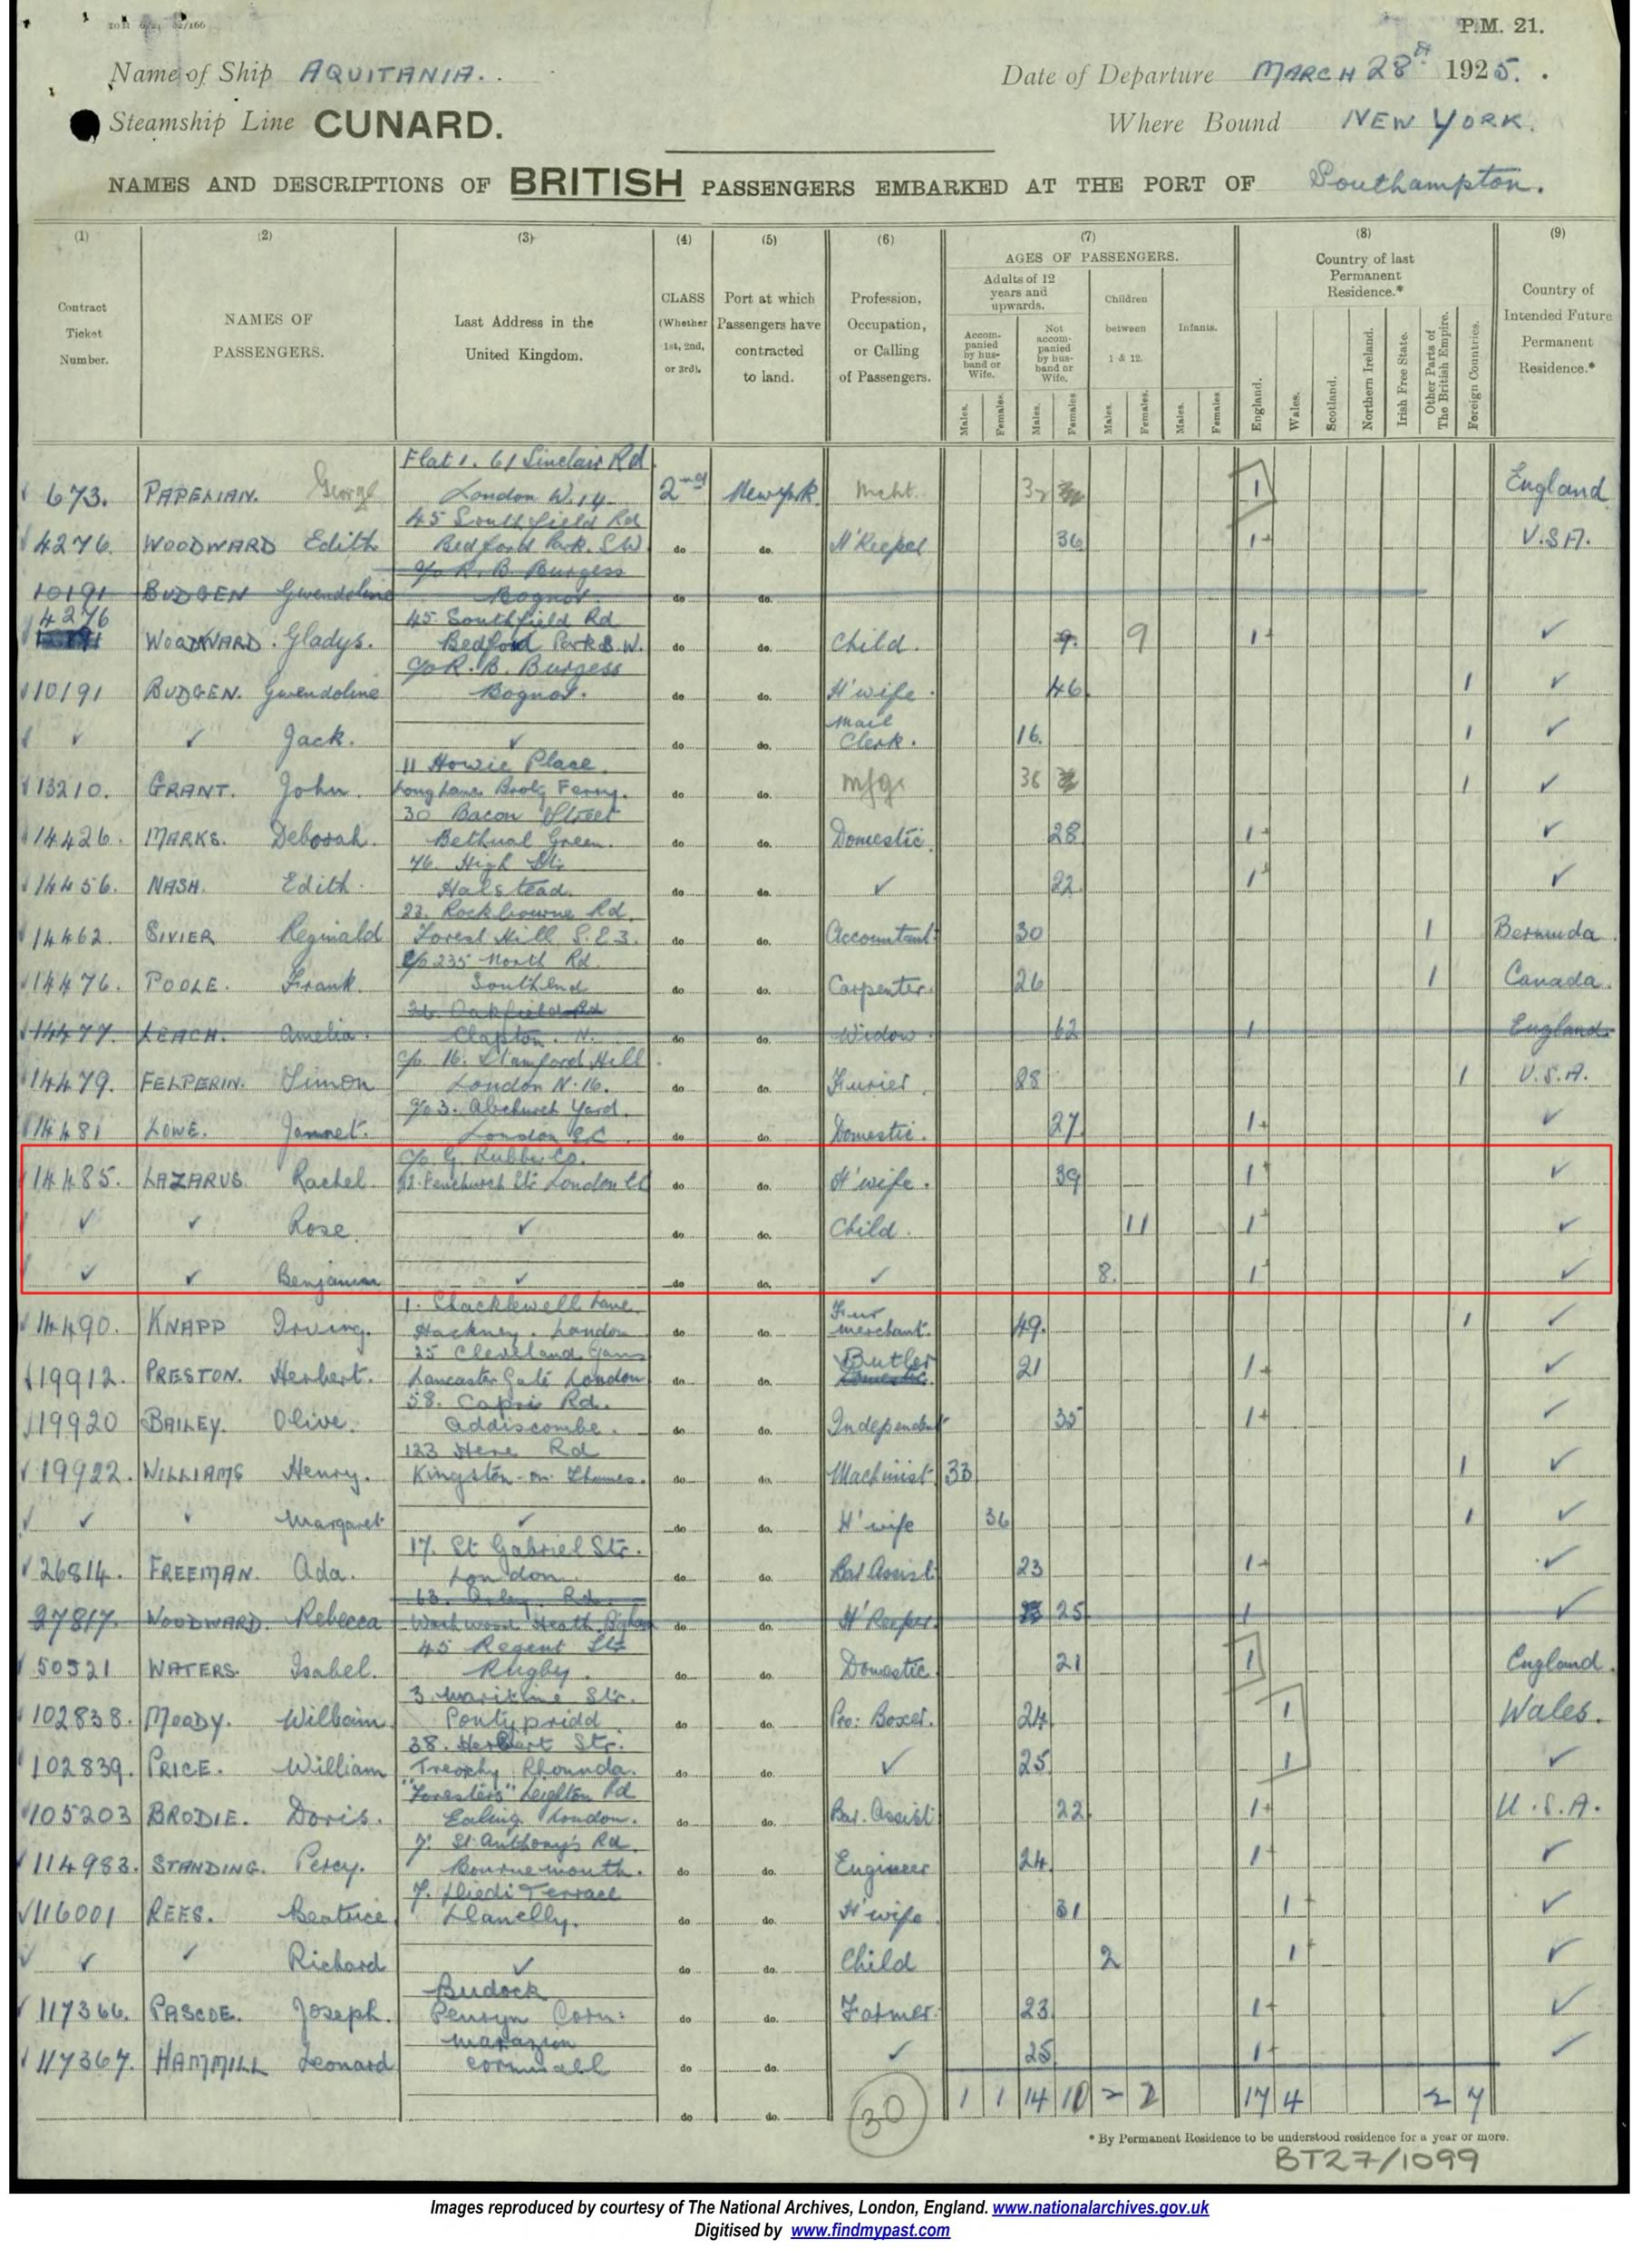 P.M. 21.
Name of Ship AQUITANIA. Date of Departure MARCH 28th 1925.
Steamship Line CUNARD. Where Bound NEW YORK.
NAMES AND DESCRIPTIONS OF BRITISH PASSENGERS EMBARKED AT THE PORT OF Southampton.
(1) (2) (3) (4) (5) (6) (7) (8) (9)
Contract Ticket Number.
NAMES OF PASSENGERS.
Last Address in the United Kingdom.
CLASS (Whether 1st, 2nd, or 3rd).
Port at which Passengers have contracted to land.
Profession, Occupation, or Calling of Passengers.
AGES OF PASSENGERS.
Adults of 12 years and upwards.
Accompanied by husband or Wife.
Not accompanied by husband or Wife.
Children between 1 & 12.
Infants.
Males. Females. Males. Females. Males. Females. Males. Females
Country of last Permanent Residence.*
England. Wales. Scotland. Northern Ireland. Irish Free State. Other Parts of The British Empire. Foreign Countries.
Country of Intended Future Permanent Residence.*
Flat 1. 61 Sinclair Rd
673. PAPENIAN. George London W.14 2nd New York Mcht. 1 England
45 Southfield Rd
4276. WOODWARD Edith Bedford Park. S.W do do. H'Keeper 36 1 U.S.A.
c/o R. B. Burgess
10191 BUDGEN Gwendoline Bognor. do do.
4276 45 Southfield Rd
WOODWARD. Gladys. Bedford Park S.W. do do. Child. 9. 9 1 ✓
c/o R. B. Burgess
10191 BUDGEN. Gwendoline Bognor. do do. H'wife. 46 1 ✓
Mail
✓ ✓ Jack. ✓ do do. Clerk. 16. 1 ✓
11 Howie Place.
13210. GRANT. John. Long Lane Broty Ferry. do do. Mfgr 36 1 ✓
30 Bacon Street
14426. MARKS. Deborah. Bethnal Green. do do. Domestic. 28 1 ✓
76. High St.
14456. NASH. Edith. Halstead. do do. ✓ 22 1 ✓
22. Rockbourne Rd.
14462. SIVIER Reginald Forest Hill S.E3. do do. Accountant 30 1 Bermuda
c/o 235 North Rd.
14476. POOLE. Frank. Southend do do. Carpenter. 26 1 Canada.
Oakfield Rd
14477. LEACH. Amelia. Clapton. N. do do. Widow. 62 1 England.
c/o. 16. Stamford Hill
14479. FELPERIN. Simon London N.16. do do. Furier. 28 1 U.S.A.
c/o 3. Abchurch Yard.
14481 LOWE. Jannet. London E.C. do do. Domestic. 27. 1 ✓
c/o. G. Rubber Co.
14485. LAZARUS. Rachel. Fenchurch St. London EC do do. H'wife. 39 1 ✓
✓ ✓ Rose. ✓ do do. Child. 11 1 ✓
✓ ✓ Benjamin ✓ do do. ✓ 8. 1 ✓
1. Shacklewell Lane. Fur
14490. KNAPP Irving. Hackney. London do do. merchant. 49. 1 ✓
25 Cleveland Gdns Butler
19912. PRESTON. Herbert. Lancaster Gate London do do. Domestic. 21 1 ✓
58. Capri Rd.
19920 BAILEY. Olive. Addiscombe. do do. Independent 35 1 ✓
123 Rd
19922. WILLIAMS Henry. Kingston-on-Thames. do do. Machinist 33 1 ✓
✓ ✓ Margaret ✓ do do. H'wife 36 1 ✓
17. St Gabriel Str.
26814. FREEMAN. Ada. London. do do. Bar Assist. 23 1 ✓
63. Rd.
27817. WOODWARD. Rebecca Heath do do. H'Keeper. 25 1 ✓
45 Regent St
50521 WATERS. Isabel. Rugby. do do. Domestic 21 1 England.
3. Maritime Str.
102838. MOODY. William. Pontypridd do do. Pro: Boxer. 24 1 Wales.
38. Herbert Str.
102839. PRICE. William Treorchy Rhondda. do do. ✓ 25 1 ✓
"Foresters" Leighton Rd
105203 BRODIE. Doris. Ealing. London. do do. Bar. Assist. 22 1 U.S.A.
7. St Anthony's Rd.
114983. STANDING. Percy. Bournemouth. do do. Engineer 24 1 ✓
7. Lliedi Terrace
116001 REES. Beatrice. Llanelly. do do. H'wife. 31 1 ✓
✓ ✓ Richard ✓ do do. Child 2 1 ✓
Budock
117366. PASCOE. Joseph. Penryn Corn: do do. Farmer. 23 1 ✓
Marazion
117367. HAMMILL Leonard Cornwall do do. ✓ 25 1 ✓
do do. 30 1 1 14 10 2 2 17 4 2 7
* By Permanent Residence to be understood residence for a year or more.
BT27/1099
Images reproduced by courtesy of The National Archives, London, England. www.nationalarchives.gov.uk
Digitised by www.findmypast.com